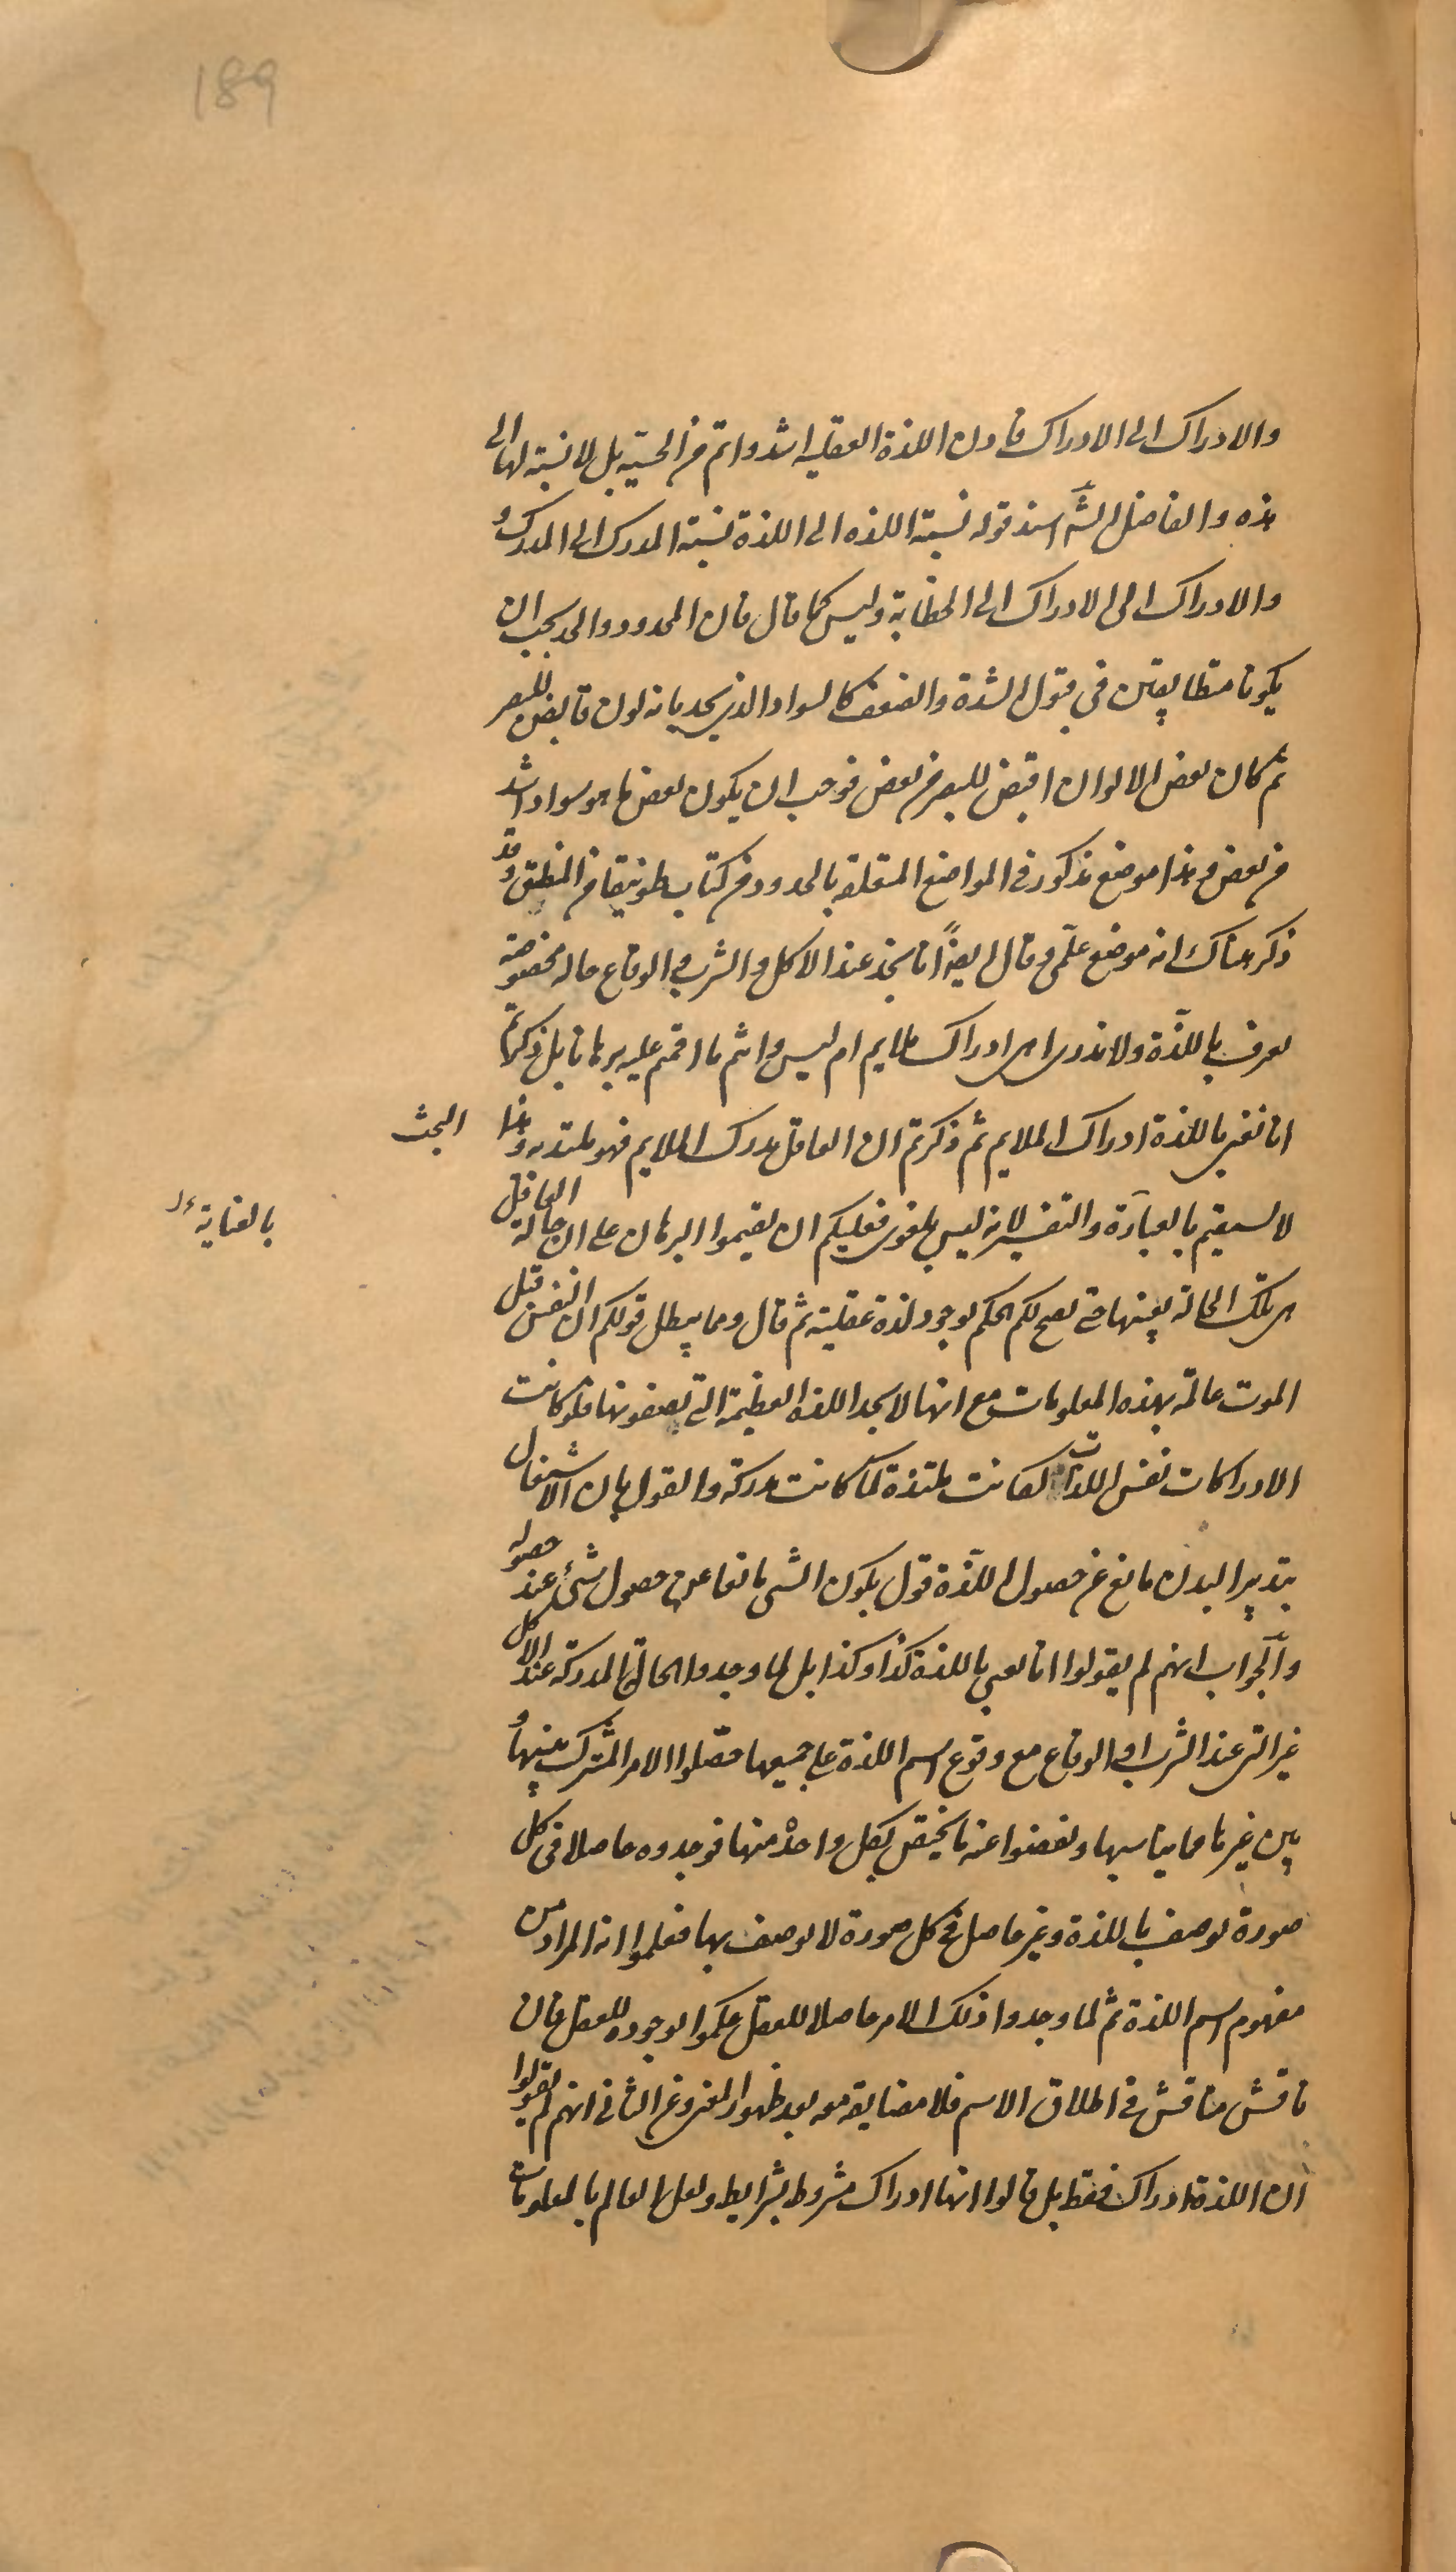 189
والادراك الى الادراك فاذن اللذة العقليه اشد واتم من الحسيّة بل لا نسبة لها الى
هذه والفاضل الشّ اسند قوله نسبة اللذه الى اللذة نسبة المدرك الى المدرك و
والادراك الى الادراك الى الخطابة وليس كما قال فان المحدود والحد يجب ان
يكونا متطابقين فى قبول الشدة والضعف كالسواد الذى يحد بانه لون قابض للبصر
ثم كان بعض الالوان اقبض للبصر من بعض فوجب ان يكون بعض ما هو سواد اشد
من بعض وهذا موضع مذكور فى المواضع المتعلقه بالحدود من كتاب طونيقا من المنطق وقد
ذكر هناك انه موضع علمى وقال ايضاً انا نجد عند الاكل والشرب والوقاع حاله مخصوصة
تعرف باللذّة ولا ندرى اهى ادراك ملايم ام ليس وانتم ما اقمتم عليه برهانا بل ذكرتم
انا نعنى باللذة ادراك الملايم ثم ذكرتم ان العاقل مدرك الملايم فهو ملتذ به وهذا البحث
لا يستقيم بالعبارة والتفسير لانه ليس بلغوى فعليكم ان يقيموا البرهان على ان حالة العاقل بالعناية
هى تلك الحالة بعينها حتى يصح لكم الحكم بوجود لذة عقلية ثم قال ومما يبطل قولكم ان النفس قبل
الموت عالمة بهذه المعلومات مع انها لا تجد اللذه العظيمة التى تصفونها فلو كانت
الادراكات نفس اللذات لكانت ملتذة كما كانت مدركة والقول بان الاشتغال
بتدبير البدن مانع عن حصول اللذّة قول بكون الشى مانعا عن حصول شئ عند حصوله
والجواب انهم لم يقولوا انا نعنى باللذة كذا وكذا بل لما وجدوا الحالة المدركة عند الاكل
غير التى عند الشرب او الوقاع مع وقوع اسم اللذة على جميعها حصّلوا الامر المشترك بينها و
بين غيرها مما يناسبها ونفضوا عنه ما يختص بكل واحد منها فوجدوه حاصلا فى كل
صورة توصف باللذة وغير حاصل فى كل صورة لا توصف بها فعلموا انه المراد من
مفهوم اسم اللذة ثم لما وجدوا ذلك الامر حاصلا للعقل حكموا بوجوده للعقل فان
ناقش مناقش فى اطلاق الاسم فلا مضايقة معه بعد ظهور المعنى وعن الثانى انهم لم يقولوا
ان اللذة ادراك فقط بل قالوا انها ادراك مشروط بشرايط ولعل العالم بالمعلومات